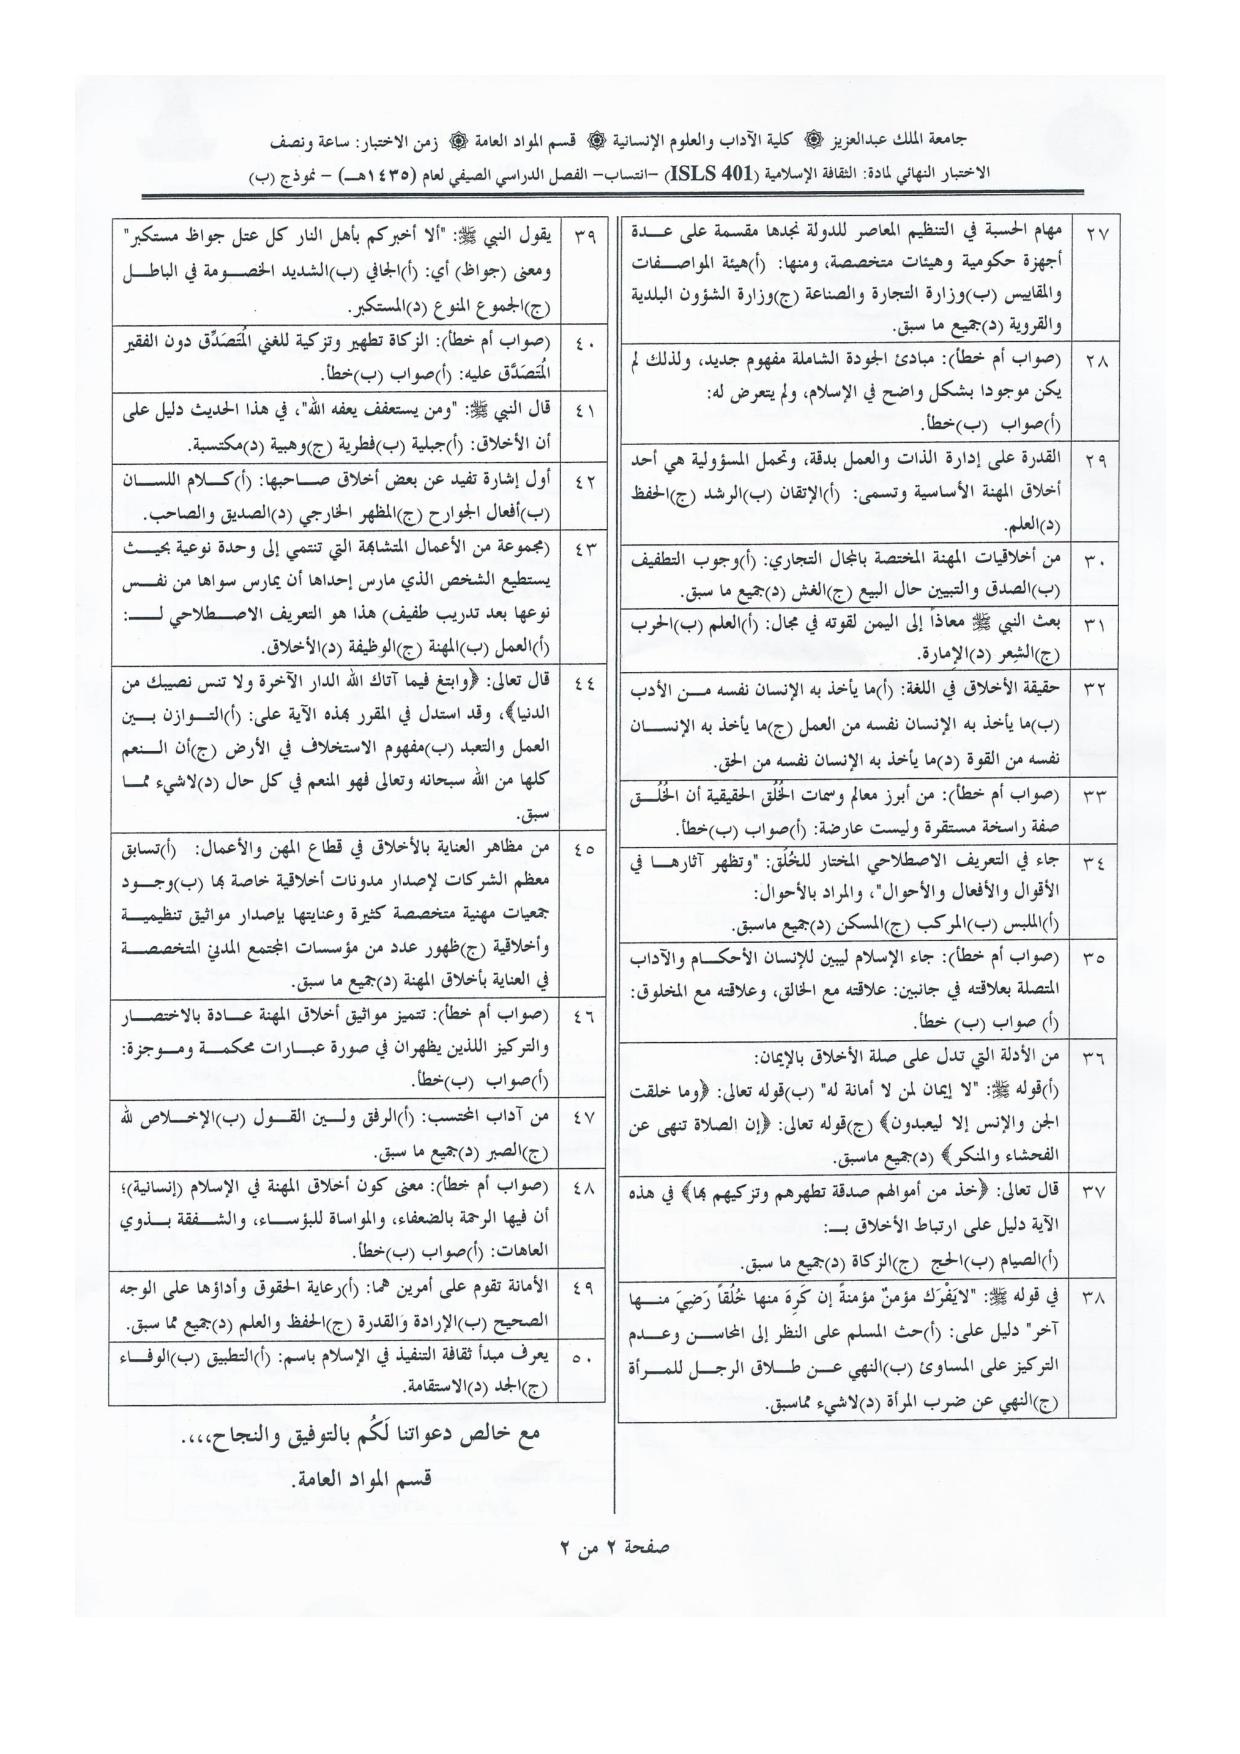 جامعة الملك عبدالعزيز ۞ كلية الآداب والعلوم الإنسانية ۞ قسم المواد العامة ۞ زمن الاختبار: ساعة ونصف
الاختبار النهائي لمادة: الثقافة الإسلامية (ISLS 401) –انتساب– الفصل الدراسي الصيفي لعام (١٤٣٥هـ) – نموذج (ب)
٢٧ مهام الحسبة في التنظيم المعاصر للدولة نجدها مقسمة على عدة
أجهزة حكومية وهيئات متخصصة، ومنها: (أ)هيئة المواصفات
والمقاييس (ب)وزارة التجارة والصناعة (ج)وزارة الشؤون البلدية
والقروية (د)جميع ما سبق.
٢٨ (صواب أم خطأ): مبادئ الجودة الشاملة مفهوم جديد، ولذلك لم
يكن موجودا بشكل واضح في الإسلام، ولم يتعرض له:
(أ)صواب (ب)خطأ.
٢٩ القدرة على إدارة الذات والعمل بدقة، وتحمل المسؤولية هي أحد
أخلاق المهنة الأساسية وتسمى: (أ)الإتقان (ب)الرشد (ج)الحفظ
(د)العلم.
٣٠ من أخلاقيات المهنة المختصة بالمجال التجاري: (أ)وجوب التطفيف
(ب)الصدق والتبيين حال البيع (ج)الغش (د)جميع ما سبق.
٣١ بعث النبي ﷺ معاذاً إلى اليمن لقوته في مجال: (أ)العلم (ب)الحرب
(ج)الشِعر (د)الإمارة.
٣٢ حقيقة الأخلاق في اللغة: (أ)ما يأخذ به الإنسان نفسه من الأدب
(ب)ما يأخذ به الإنسان نفسه من العمل (ج)ما يأخذ به الإنسان
نفسه من القوة (د)ما يأخذ به الإنسان نفسه من الحق.
٣٣ (صواب أم خطأ): من أبرز معالم وسمات الخُلُق الحقيقية أن الخُلُق
صفة راسخة مستقرة وليست عارضة: (أ)صواب (ب)خطأ.
٣٤ جاء في التعريف الاصطلاحي المختار للخُلُق: "وتظهر آثارها في
الأقوال والأفعال والأحوال"، والمراد بالأحوال:
(أ)الملبس (ب)المركب (ج)المسكن (د)جميع ماسبق.
٣٥ (صواب أم خطأ): جاء الإسلام ليبين للإنسان الأحكام والآداب
المتصلة بعلاقته في جانبين: علاقته مع الخالق، وعلاقته مع المخلوق:
(أ) صواب (ب) خطأ.
٣٦ من الأدلة التي تدل على صلة الأخلاق بالإيمان:
(أ)قوله ﷺ: "لا إيمان لمن لا أمانة له" (ب)قوله تعالى: ﴿وما خلقت
الجن والإنس إلا ليعبدون﴾ (ج)قوله تعالى: ﴿إن الصلاة تنهى عن
الفحشاء والمنكر﴾ (د)جميع ماسبق.
٣٧ قال تعالى: ﴿خذ من أموالهم صدقة تطهرهم وتزكيهم بها﴾ في هذه
الآية دليل على ارتباط الأخلاق بـ:
(أ)الصيام (ب)الحج (ج)الزكاة (د)جميع ما سبق.
٣٨ في قوله ﷺ: "لايَفْرَك مؤمنٌ مؤمنةً إن كَرِهَ منها خُلُقاً رَضِيَ منها
آخر" دليل على: (أ)حث المسلم على النظر إلى المحاسن وعدم
التركيز على المساوئ (ب)النهي عن طلاق الرجل للمرأة
(ج)النهي عن ضرب المرأة (د)لاشيء مماسبق.
٣٩ يقول النبي ﷺ: "ألا أخبركم بأهل النار كل عتل جواظ مستكبر"
ومعنى (جواظ) أي: (أ)الجافي (ب)الشديد الخصومة في الباطل
(ج)الجموع المنوع (د)المستكبر.
٤٠ (صواب أم خطأ): الزكاة تطهير وتزكية للغني المُتَصَدِّق دون الفقير
المُتَصَدَّق عليه: (أ)صواب (ب)خطأ.
٤١ قال النبي ﷺ: "ومن يستعفف يعفه الله"، في هذا الحديث دليل على
أن الأخلاق: (أ)جبلية (ب)فطرية (ج)وهبية (د)مكتسبة.
٤٢ أول إشارة تفيد عن بعض أخلاق صاحبها: (أ)كلام اللسان
(ب)أفعال الجوارح (ج)المظهر الخارجي (د)الصديق والصاحب.
٤٣ (مجموعة من الأعمال المتشابهة التي تنتمي إلى وحدة نوعية بحيث
يستطيع الشخص الذي مارس إحداها أن يمارس سواها من نفس
نوعها بعد تدريب طفيف) هذا هو التعريف الاصطلاحي لـ:
(أ)العمل (ب)المهنة (ج)الوظيفة (د)الأخلاق.
٤٤ قال تعالى: ﴿وابتغ فيما آتاك الله الدار الآخرة ولا تنس نصيبك من
الدنيا﴾، وقد استدل في المقرر بهذه الآية على: (أ)التوازن بين
العمل والتعبد (ب)مفهوم الاستخلاف في الأرض (ج)أن النعم
كلها من الله سبحانه وتعالى فهو المنعم في كل حال (د)لاشيء مما
سبق.
٤٥ من مظاهر العناية بالأخلاق في قطاع المهن والأعمال: (أ)تسابق
معظم الشركات لإصدار مدونات أخلاقية خاصة بها (ب)وجود
جمعيات مهنية متخصصة كثيرة وعنايتها بإصدار مواثيق تنظيمية
وأخلاقية (ج)ظهور عدد من مؤسسات المجتمع المدني المتخصصة
في العناية بأخلاق المهنة (د)جميع ما سبق.
٤٦ (صواب أم خطأ): تتميز مواثيق أخلاق المهنة عادة بالاختصار
والتركيز اللذين يظهران في صورة عبارات محكمة وموجزة:
(أ)صواب (ب)خطأ.
٤٧ من آداب المحتسب: (أ)الرفق ولين القول (ب)الإخلاص لله
(ج)الصبر (د)جميع ما سبق.
٤٨ (صواب أم خطأ): معنى كون أخلاق المهنة في الإسلام (إنسانية)؛
أن فيها الرحمة بالضعفاء، والمواساة للبؤساء، والشفقة بذوي
العاهات: (أ)صواب (ب)خطأ.
٤٩ الأمانة تقوم على أمرين هما: (أ)رعاية الحقوق وأداؤها على الوجه
الصحيح (ب)الإرادة والقدرة (ج)الحفظ والعلم (د)جميع مما سبق.
٥٠ يعرف مبدأ ثقافة التنفيذ في الإسلام باسم: (أ)التطبيق (ب)الوفاء
(ج)الجد (د)الاستقامة.
مع خالص دعواتنا لَكُم بالتوفيق والنجاح،،،،
قسم المواد العامة.
صفحة ٢ من ٢